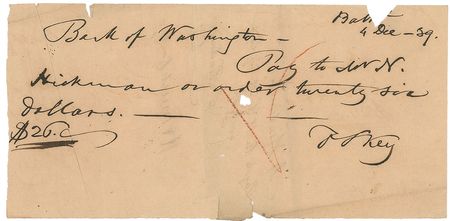 Balt
4 Dec - 39.
Bank of Washington -
Pay to Mr N.
Hickman or order twenty six
dollars.
$26.
F S Key